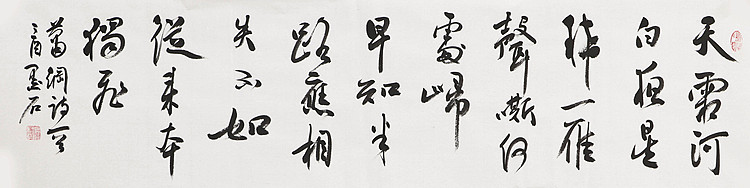 天霜河
白夜星
稀一雁
聲嘶何
處歸
早知半
路應相
失不如
從來本
獨飛
蕭綱詩
墨石